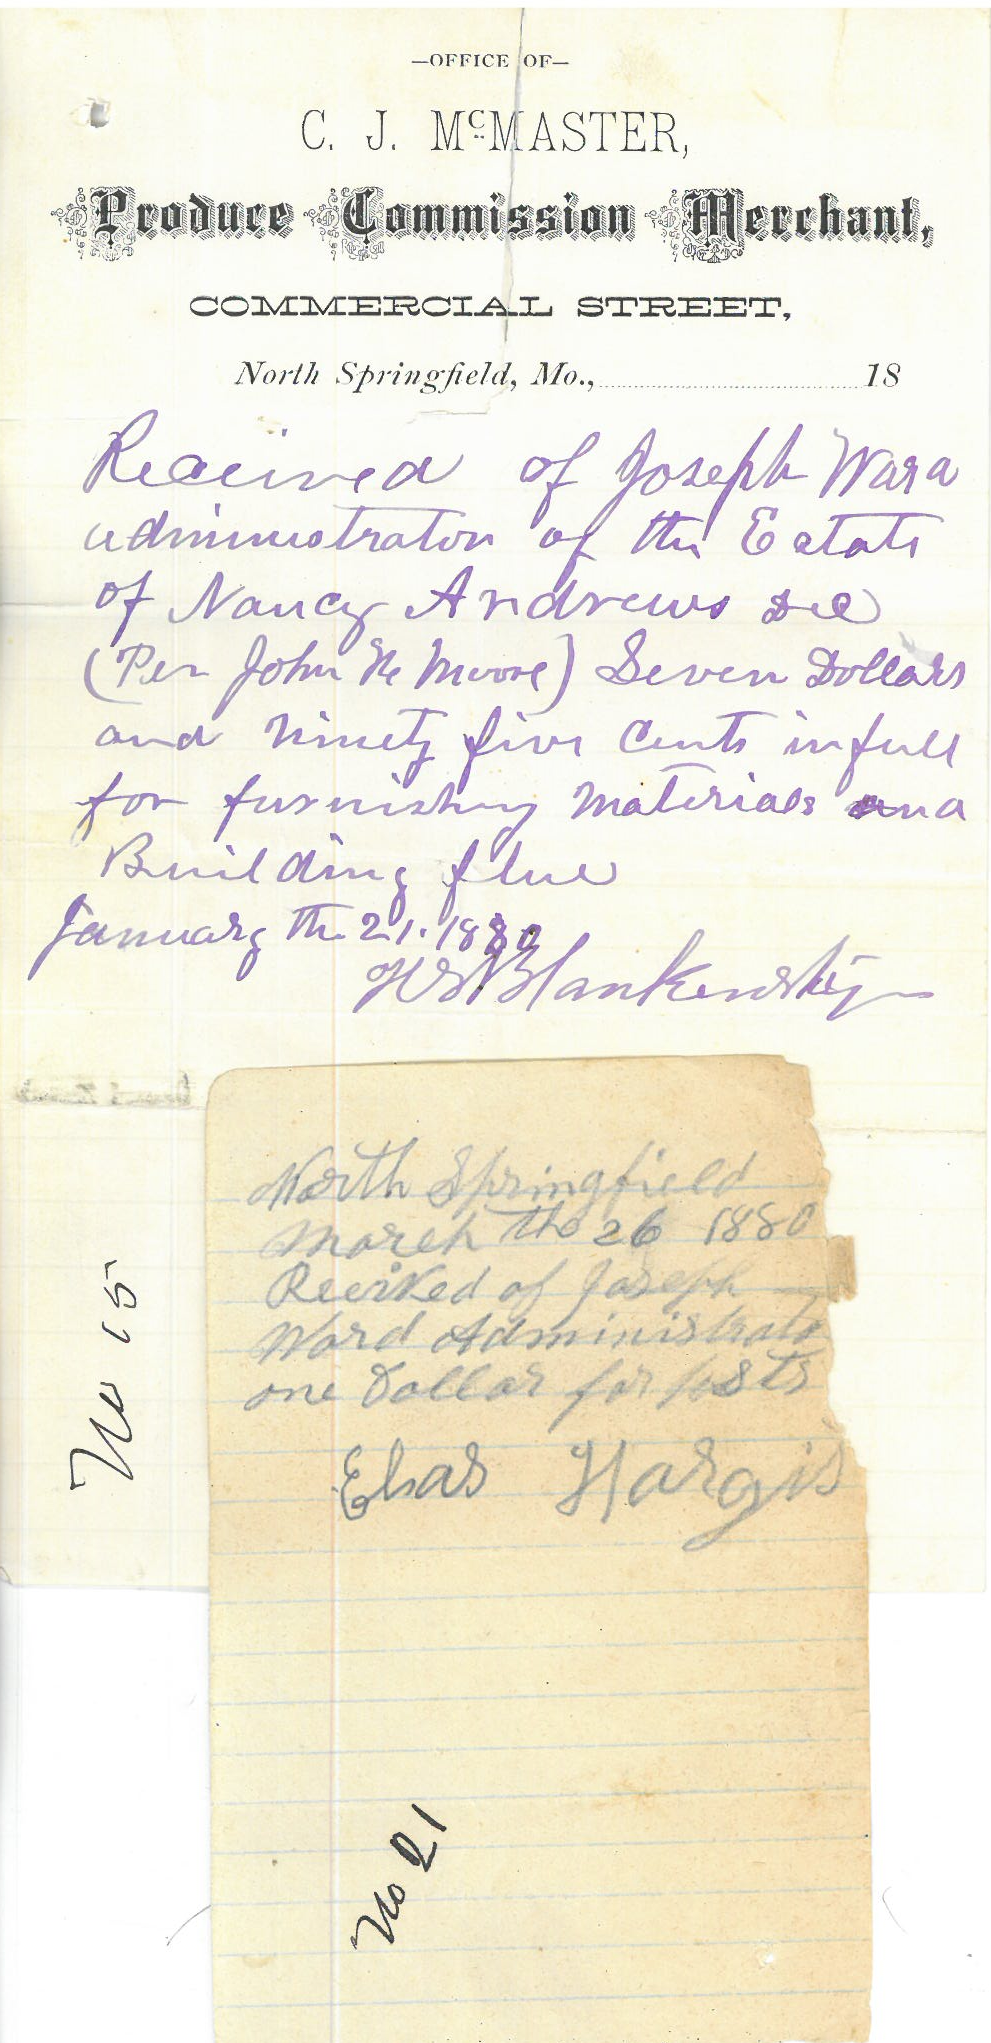 —OFFICE OF—
C. J. McMASTER,
Produce Commission Merchant,
COMMERCIAL STREET,
North Springfield, Mo., 18
Received of Joseph Ward
administrator of the Estate
of Nancy Andrews Dec
(Per John Mc Moore) Seven Dollars
and Ninety five Cents in full
for furnishing Materials and
Building flue
January the 21. 1880
Blankenship
No 15
North Springfield
March the 26 1880
Recived of Joseph
Ward Administrato
one Dollar for posts
Elias Hargis
No 21